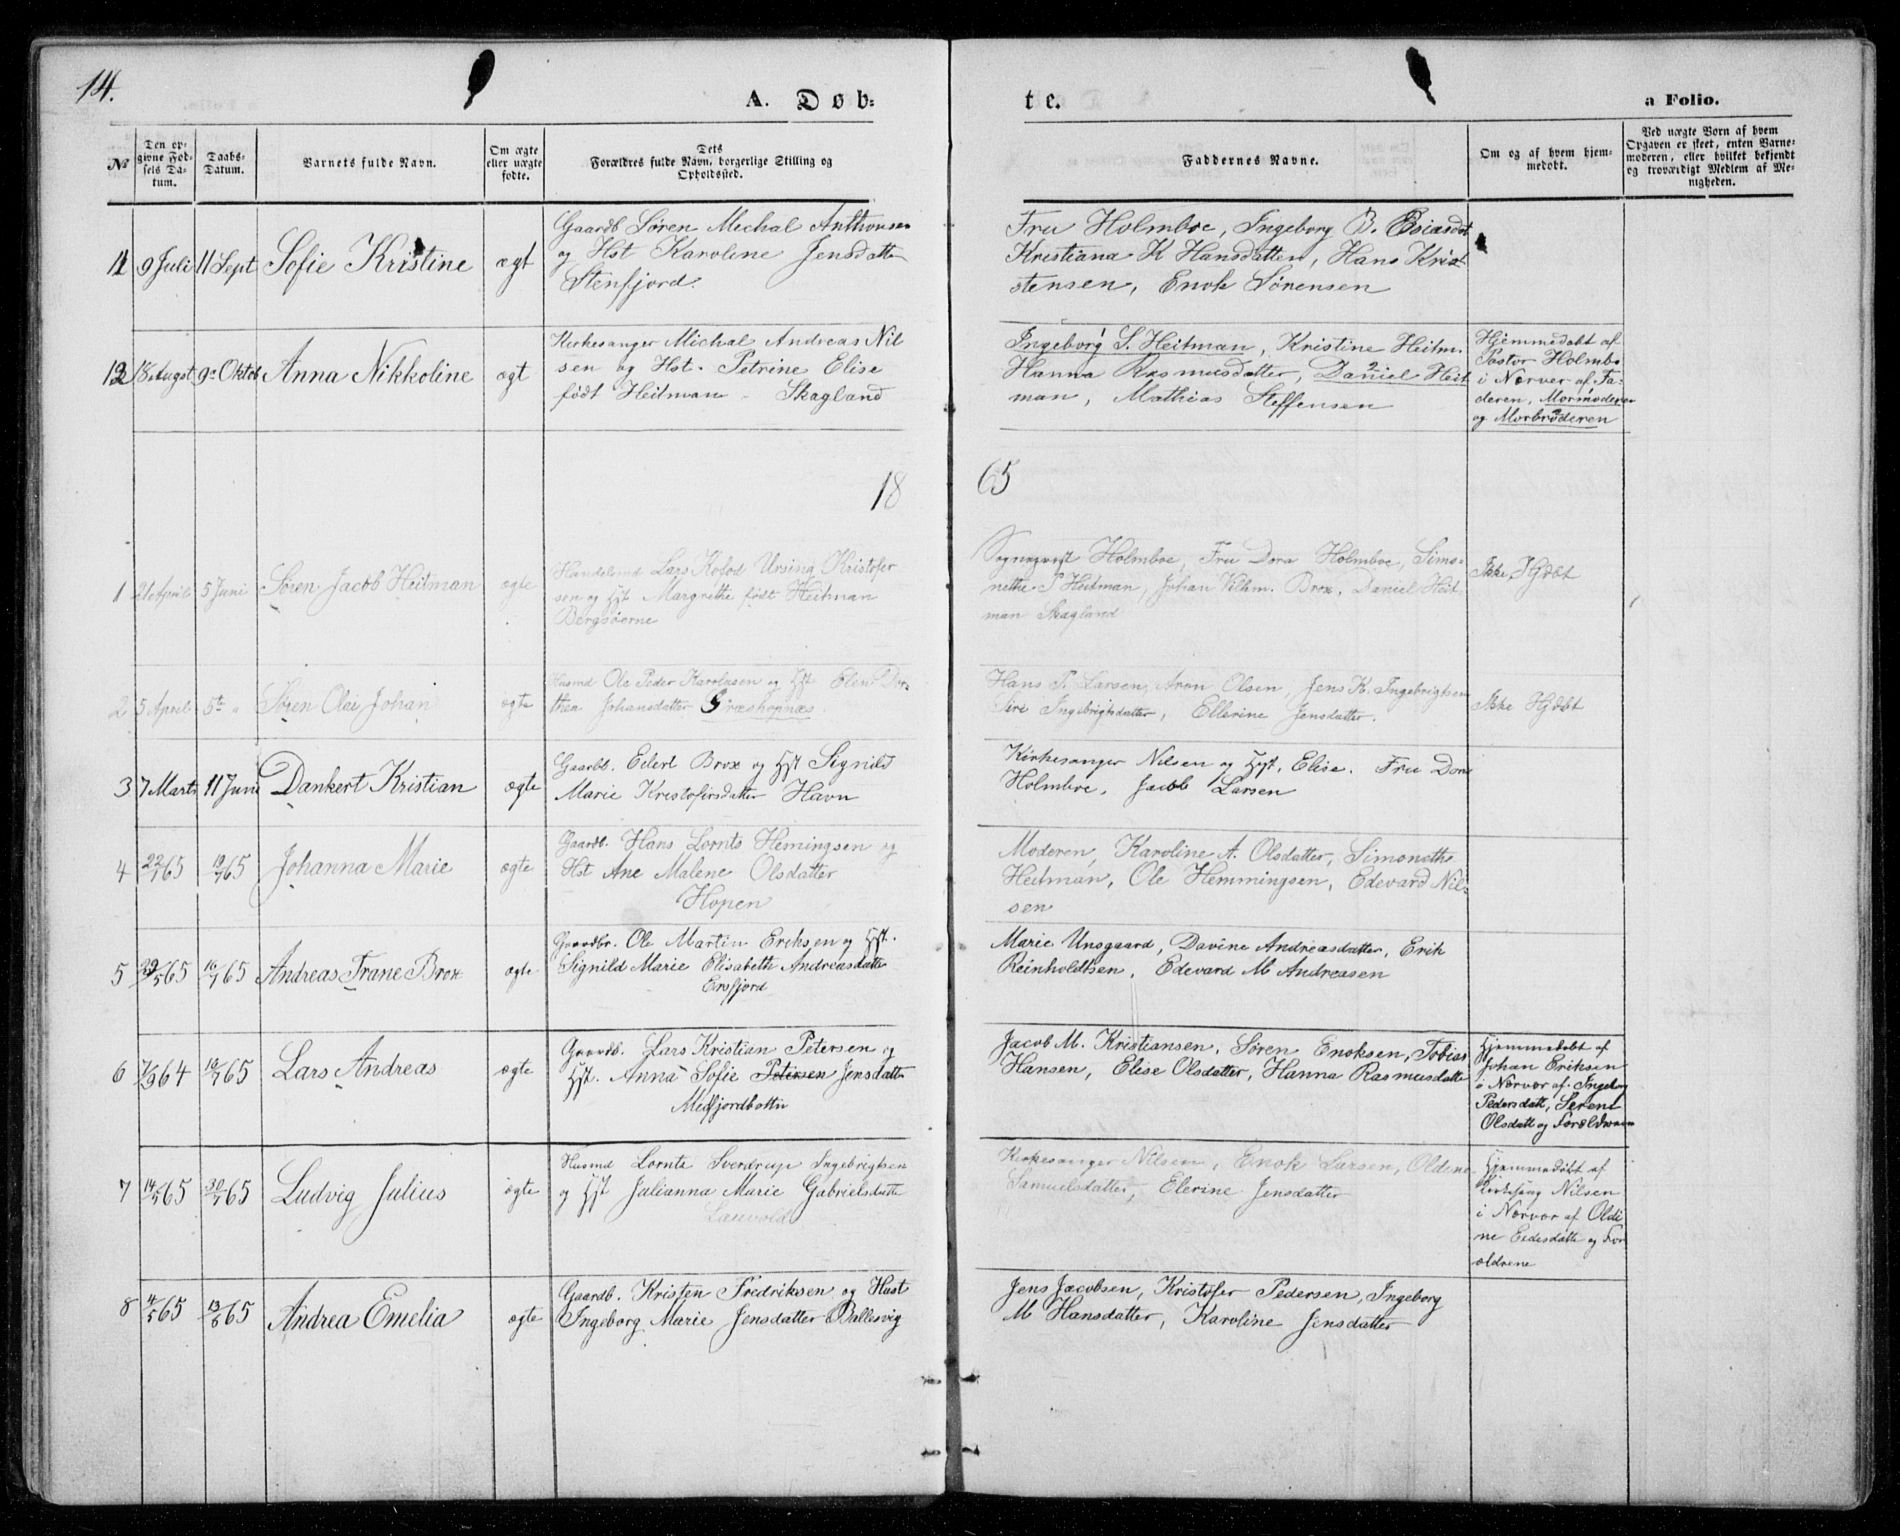 14.
A. Døb-
te.
a Folio.
No
Den op-
givne Fød-
sels Da-
tum.
Daabs-
Datum.
Barnets fulde Navn.
Om ægte
eller uægte
fødte.
Dets
Forældres fulde Navn, borgerlige Stilling og
Opholdssted.
Faddernes Navne.
Om og af hvem hjem-
medøbt.
Ved uægte Børn af hvem
Opgaven er skeet, enten Barne-
moderen, eller hvilket bekjendt
og troværdigt Medlem af Me-
nigheden.
11 9 Juli 11 Sept Sofie Kristine ægt
Gaardb Søren Michal Anthonsen
og Hst Karoline Jensdatter
Stenfjord.
Fru Holmboe, Ingeborg B.
Kristiana K Hansdatter, Hans Kris-
stensen, Enok Sørensen
12 18 Augst 9e Oktob Anna Nikkoline ægt
Kirkesanger Michal Andreas Nil
sen og Hst. Petrine Elise
født Heitman - Skagland
Ingeborg S. Heitman, Kristine Heitm.
Hanna Rasmusdatter, Daniel Heit
man, Mathias Steffensen
Hjemmedøbt af
Pastor Holmbo
i Nærver af Fa-
deren, Mormoderen
og Morbroderen
18 65
1 21 April 5 Juni Søren Jacob Heitman ægte
Handelsmd Lars Kofod Ursing Kristofer
sen og Hst Margrethe født Heitman
Bergsøerne
Sogneprest Holmboe, Fru Dora Holmboe, Simo-
nette P Heitman, Johan Vilhm. Brox, Daniel Heit
man Skagland
Ikke Hjdøbt
2 5 April 5te " Søren Olai Johan ægte
Husmd Ole Peder Karolusen og Hst Elen Dor-
thea Johansdatter Græshopnæs.
Hans P. Larsen, Aron Olsen, Jens K. Ingebrigtsen
Siri Ingebrigtsdatter, Ellerine Jensdatter.
Ikke Hjdøbt
3 7 Marts 11 Juni Dankert Kristian ægte
Gaardb. Edert Brox og Hst Signild
Marie Kristofersdatter Havn
Kirkesanger Nilsen og Hst. Elise. Fru Dora
Holmboe, Jacob Larsen
4 22/1 65 10/7 65 Johanna Marie ægte
Gaardb. Hans Lornts Hemingsen og
Hst Ane Malene Olsdatter
Hopen
Moderen, Karoline A. Olsdatter, Simoneth
Heitman, Ole Hemmingsen, Edevard Nil-
sen
5 29/5 65 16/7 65 Andreas Frane Brox ægte
Gaardbr. Ole Martin Eriksen og Hst.
Signild Marie Elisabeth Andreasdatte
Ersfjord
Marie Unsgaard, Davine Andreasdatter, Erik
Reinholdtsen, Edevard M Andreasen
6 7/9 64 18/7 65 Lars Andreas ægte
Gaardb. Lars Kristian Petersen og
Hst. Anna Sofie Petersen Jensdatt
Medfjordbottn
Jacob M. Kristiansen, Søren Enoksen, Tobias
Hansen, Elise Olsdatter, Hanna Rasmusdatte
Hjemmedøbt af
Johan Eriksen
i Nærvær af Ingebog
Pedersdatt, Serene
Olsdatt og Forældrene
7 14/5 65 30/7 65 Ludvig Julius ægte
Husmd Lornts Sverdrup Ingebrigtsen
og Hst Julianna Marie Gabrielsdatte
Lauvold
Kirkesanger Nilsen, Enok Larsen, Oldine
Samuelsdatter, Elerine Jensdatter
Hjemmedøbt af
Kirkesang Nilsen
i Nærvær af Oldi
ne og For
ældrene
8 4/5 65 13/8 65 Andrea Emelia ægte
Gaardb. Kristen Fredriksen og Hust
Ingeborg Marie Jensdatter Ballesvig
Jens Jacobsen, Kristofer Pedersen, Ingeborg
M Hansdatter, Karoline Jensdatter